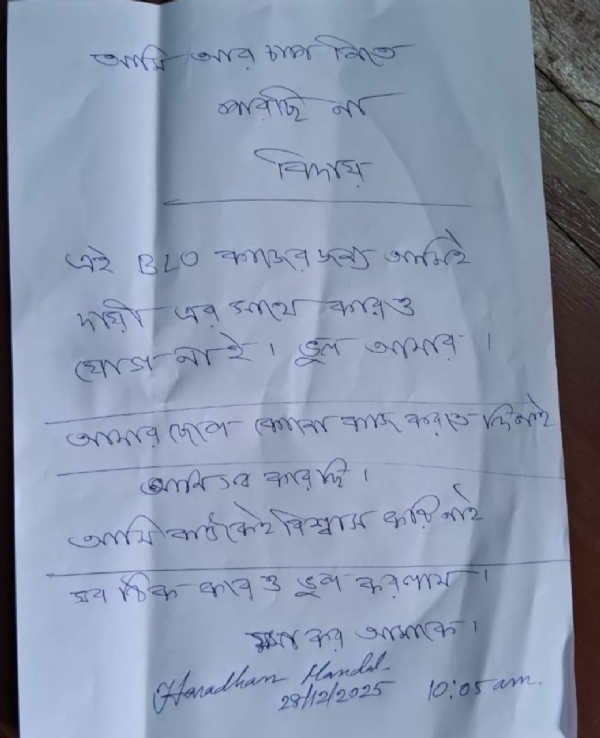 আমি আর চাপ নিতে
পারছি না
বিদায়
এই BLO কাজের জন্য আমিই
দায়ী এর সাথে কারও
যোগ নাই। ভুল আমার।
আমার ছেলে কোনো কাজ করতে দিই নাই
আমি সব করেছি।
আমি কাউকেই বিশ্বাস করি নাই
সব ঠিক করেও ভুল করলাম।
ক্ষমা কর আমাকে।
Haradhan Mandal
28/12/2025 10:05 am.